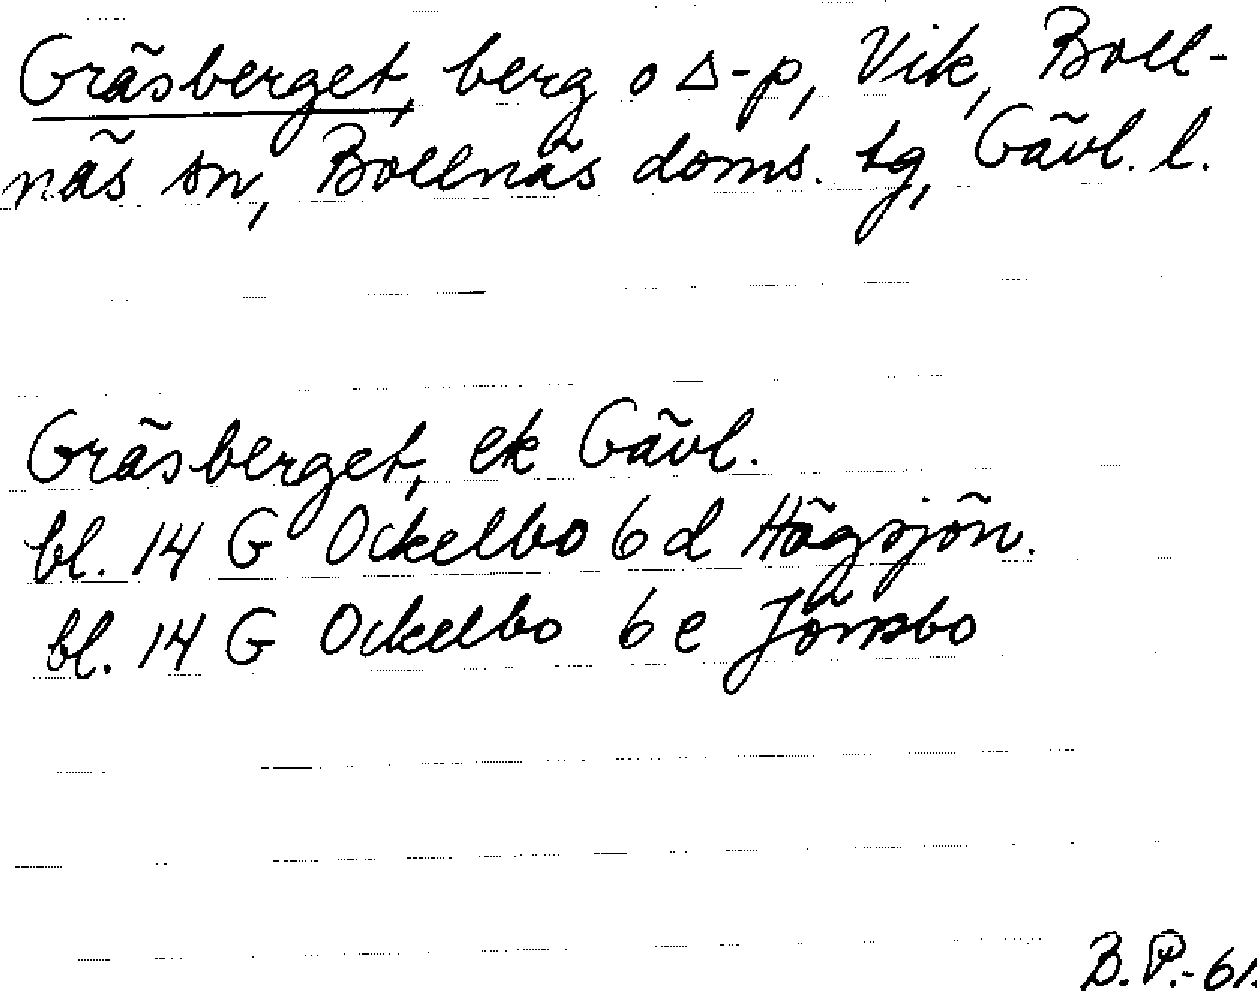 Gräsberget, berg o Δ-p, Vik, Boll-
näs sn, Bollnäs doms. tg, Gävl. l.
Gräsberget, ek Gävl.
bl. 14 G Ockelbo 6 d Högsjön.
bl. 14 G Ockelbo 6 e Jönsbo
B.P.-61.